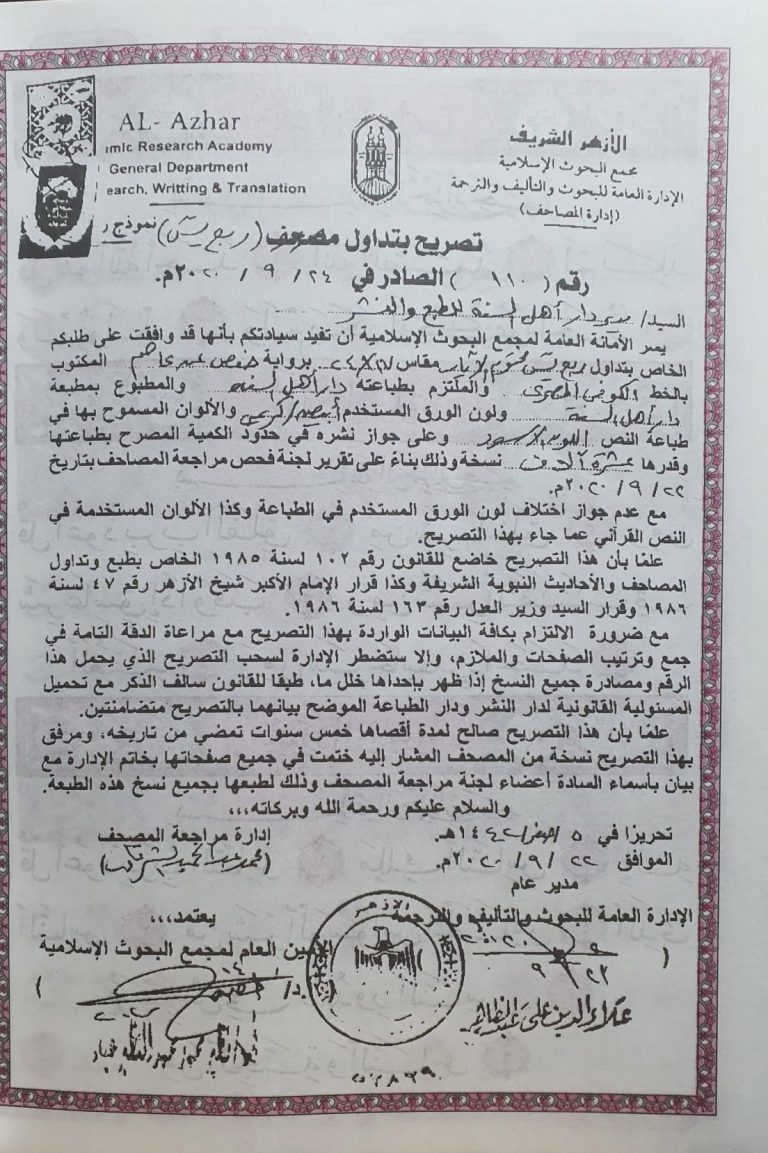 AL- Azhar
mic Research Academy
General Department
earch, Writting & Translation
الأزهر الشريف
مجمع البحوث الإسلامية
الإدارة العامة للبحوث والتأليف والترجمة
(إدارة المصاحف)
تصريح بتداول مصحف (ربع يس) نموذج
رقم ( ١١٠ ) الصادر في ٢٤ / ٩ / ٢٠٢٠م.
السيد/ مدير دار أهل السنة للطبع والنشر
يسر الأمانة العامة لمجمع البحوث الإسلامية أن تفيد سيادتكم بأنها قد وافقت على طلبكم
الخاص بتداول ربع يس مقاس برواية حفص عن عاصم المكتوب
بالخط الكوفى المصرى والملتزم بطباعته دار أهل السنة والمطبوع بمطبعة
دار أهل السنة ولون الورق المستخدم والألوان المسموح بها في
طباعة النص اللون الأسود وعلى جواز نشره في حدود الكمية المصرح بطباعتها
وقدرها عشرة آلاف نسخة وذلك بناءً على تقرير لجنة فحص مراجعة المصاحف بتاريخ
٢٢ / ٩ / ٢٠٢٠م.
مع عدم جواز اختلاف لون الورق المستخدم في الطباعة وكذا الألوان المستخدمة في
النص القرآني عما جاء بهذا التصريح.
علمًا بأن هذا التصريح خاضع للقانون رقم ١٠٢ لسنة ١٩٨٥ الخاص بطبع وتداول
المصاحف والأحاديث النبوية الشريفة وكذا قرار الإمام الأكبر شيخ الأزهر رقم ٤٧ لسنة
١٩٨٦ وقرار السيد وزير العدل رقم ١٦٣ لسنة ١٩٨٦.
مع ضرورة الالتزام بكافة البيانات الواردة بهذا التصريح مع مراعاة الدقة التامة في
جمع وترتيب الصفحات والملازم، وإلا ستضطر الإدارة لسحب التصريح الذي يحمل هذا
الرقم ومصادرة جميع النسخ إذا ظهر بإحداها خلل ما، طبقا للقانون سالف الذكر مع تحميل
المسئولية القانونية لدار النشر ودار الطباعة الموضح بيانهما بالتصريح متضامنتين.
علمًا بأن هذا التصريح صالح لمدة أقصاها خمس سنوات تمضي من تاريخه، ومرفق
بهذا التصريح نسخة من المصحف المشار إليه ختمت في جميع صفحاتها بخاتم الإدارة مع
بيان بأسماء السادة أعضاء لجنة مراجعة المصحف وذلك لطبعها بجميع نسخ هذه الطبعة.
والسلام عليكم ورحمة الله وبركاته،،،
تحريرًا في ٥ / صفر / ١٤٤٢هـ.
الموافق ٢٢ / ٩ / ٢٠٢٠م.
إدارة مراجعة المصحف
مدير عام
الإدارة العامة للبحوث والتأليف والترجمة
يعتمد،،،
الأمين العام لمجمع البحوث الإسلامية
الأزهر